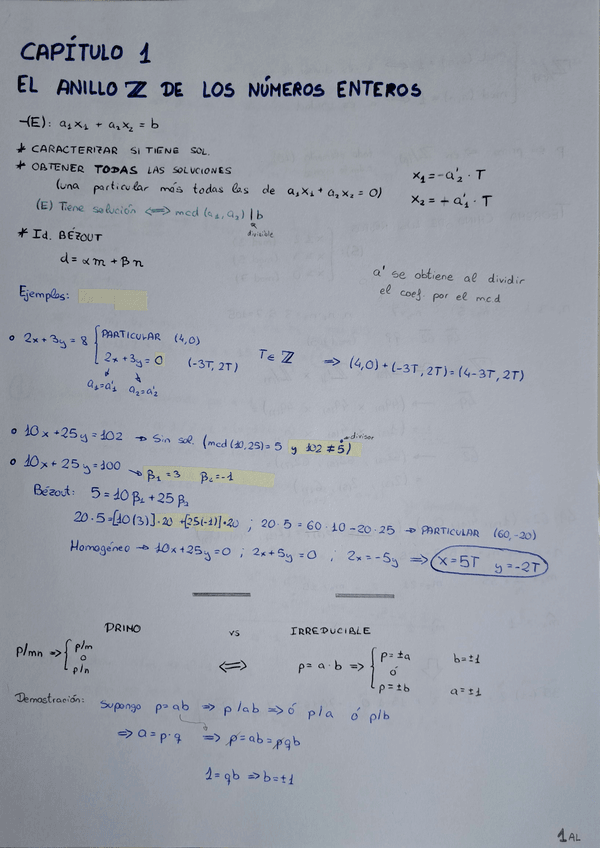 CAPÍTULO 1
EL ANILLO ℤ DE LOS NÚMEROS ENTEROS
(E): a₁x₁ + a₂x₂ = b
* CARACTERIZAR SI TIENE SOL.
* OBTENER TODAS LAS SOLUCIONES
(una particular más todas las de a₁x₁ + a₂x₂ = 0)
x₁ = -a'₂ · T
x₂ = + a'₁ · T
(E) Tiene solución ⟺ mcd (a₁, a₂) | b
divisible
* Id. BÉZOUT
d = αm + βn
a' se obtiene al dividir
el coef. por el mcd
Ejemplos:
o 2x + 3y = 8 { PARTICULAR (4,0)
2x + 3y = 0 (-3T, 2T) T ∈ ℤ ⇒ (4,0) + (-3T, 2T) = (4-3T, 2T)
a₁=a'₁ a₂=a'₂
o 10x + 25y = 102 → Sin sol. (mcd (10,25) = 5 y 102 ≠ 5̇)
→ divisor
o 10x + 25y = 100 → β₁ = 3 β₂ = -1
Bézout: 5 = 10β₁ + 25β₂
20·5 = [10(3)]·20 + [25(-1)]·20 ; 20·5 = 60·10 - 20·25 → PARTICULAR (60,-20)
Homogéneo → 10x + 25y = 0 ; 2x + 5y = 0 ; 2x = -5y ⇒ x = 5T y = -2T
PRIMO vs IRREDUCIBLE
p/mn ⇒ { p/m o p/n ⟺ p = a·b ⇒ { p = ±a b = ±1
ó
p = ±b a = ±1
Demostración: Supongo p = ab ⇒ p/ab ⇒ ó p/a ó p/b
⇒ a = p·q ⇒ p = ab = pqb
1 = qb ⇒ b = ±1
1 AL